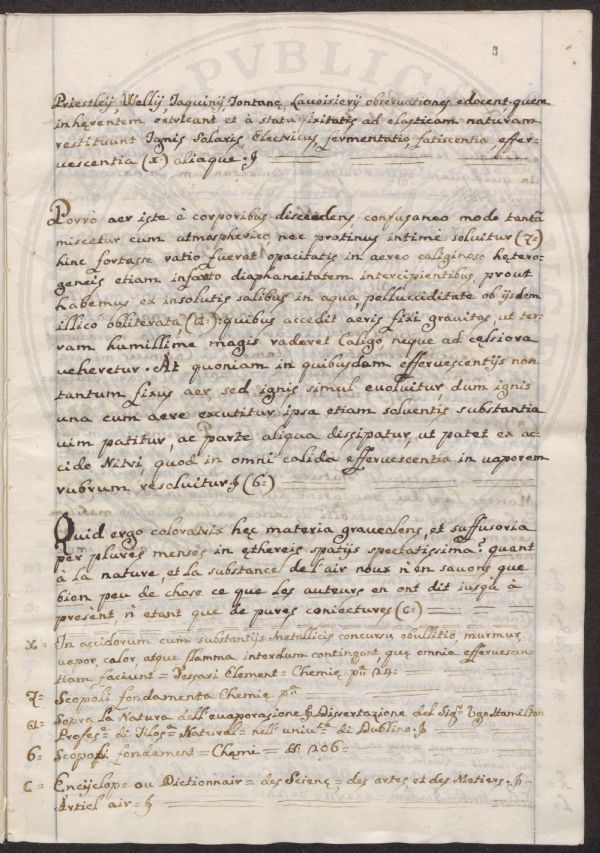 Priestleij, Wellij, Jaquinij, Fontanę, Lavoisierij observationes edocent. quem
inhęrentem extricant et à statu fixitatis ad elasticam naturam
restituunt Ignis Solaris, Electricus, fermentatio, fatiscentia effer-
uescentia (x) aliaque.
Porrò aer iste è corporibus discedens confusaneo modo tantũ
miscetur cum atmospherico, nec protinus intimè soluitur (z=)
hinc fortasse ratio fuerat opacitatis in aereo caliginoso hętero-
geneis etiam infarto diaphaneitatem intercipientibus, prout
habemus ex insolutis salibus in aqua, pellucciditate ob ijsdem
illico obliterata (a=): quibus accedit aeris fixi grauitas, ut ter-
ram humillime magis raderet Caligo, neque ad cęlsiora
ueheretur. At quoniam in quibusdam efferuescentijs non
tantum fixus aer, sed ignis simul euoluitur, dum ignis
una cum aere excutitur ipsa etiam soluentis substantia
uim patitur, ac parte aliqua dissipatur, ut patet ex ac-
cide Nitri, quod in omni calida efferuescentia in uaporem
rubrum resoluitur (b=)
Quid ergo coloratrix hęc materia graueolens, et suffusoria
per plures menses in ethereis spatijs spectatissima? quant
à la nature, et la substance de l'air noux n'en sauons que
bien peu de chose ce que les auteurs en ont dit iusqu à
present, n'etant que de pures coniectures (c=)
x= In accidorum cum substantijs Metallicis concursu ebullitio, murmur,
uapor, calor, atque flamma interdum contingunt quę omnia efferuescen-
tiam faciunt= Dessari Element= Chemię pª 24=
z= Scopoli fondamenta Chemię pª
a= Sopra la Natura dell'euaporasione Dissertazione del Sigr. Vgo Hamilton
Profes.e di Filos.a Natural= nell' uniu.ta di Dublino.
b= Scopoli fondament= Chęmi= §§ 206=
c= Encyclop= ou Dictionnair= des Scienę= des artes, et des Metiers.
Articl air=